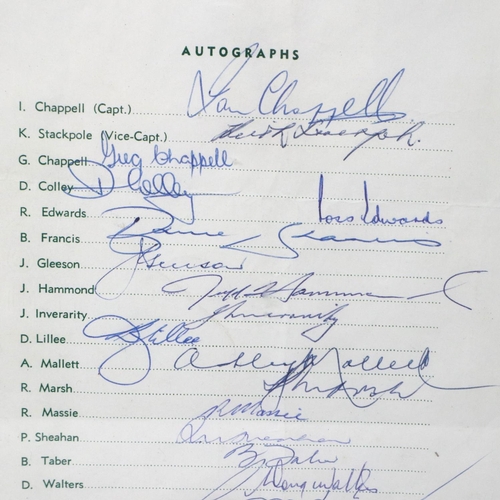 AUTOGRAPHS
I. Chappell (Capt.) Ian Chappell
K. Stackpole (Vice-Capt.) Keith Stackpole
G. Chappell Greg Chappell
D. Colley D Colley
R. Edwards Ross Edwards
B. Francis Bruce Francis
J. Gleeson J Gleeson
J. Hammond Jeff Hammond
J. Inverarity J Inverarity
D. Lillee D Lillee
A. Mallett Ashley Mallett
R. Marsh R Marsh
R. Massie R Massie
P. Sheahan
B. Taber B Taber
D. Walters Doug Walters